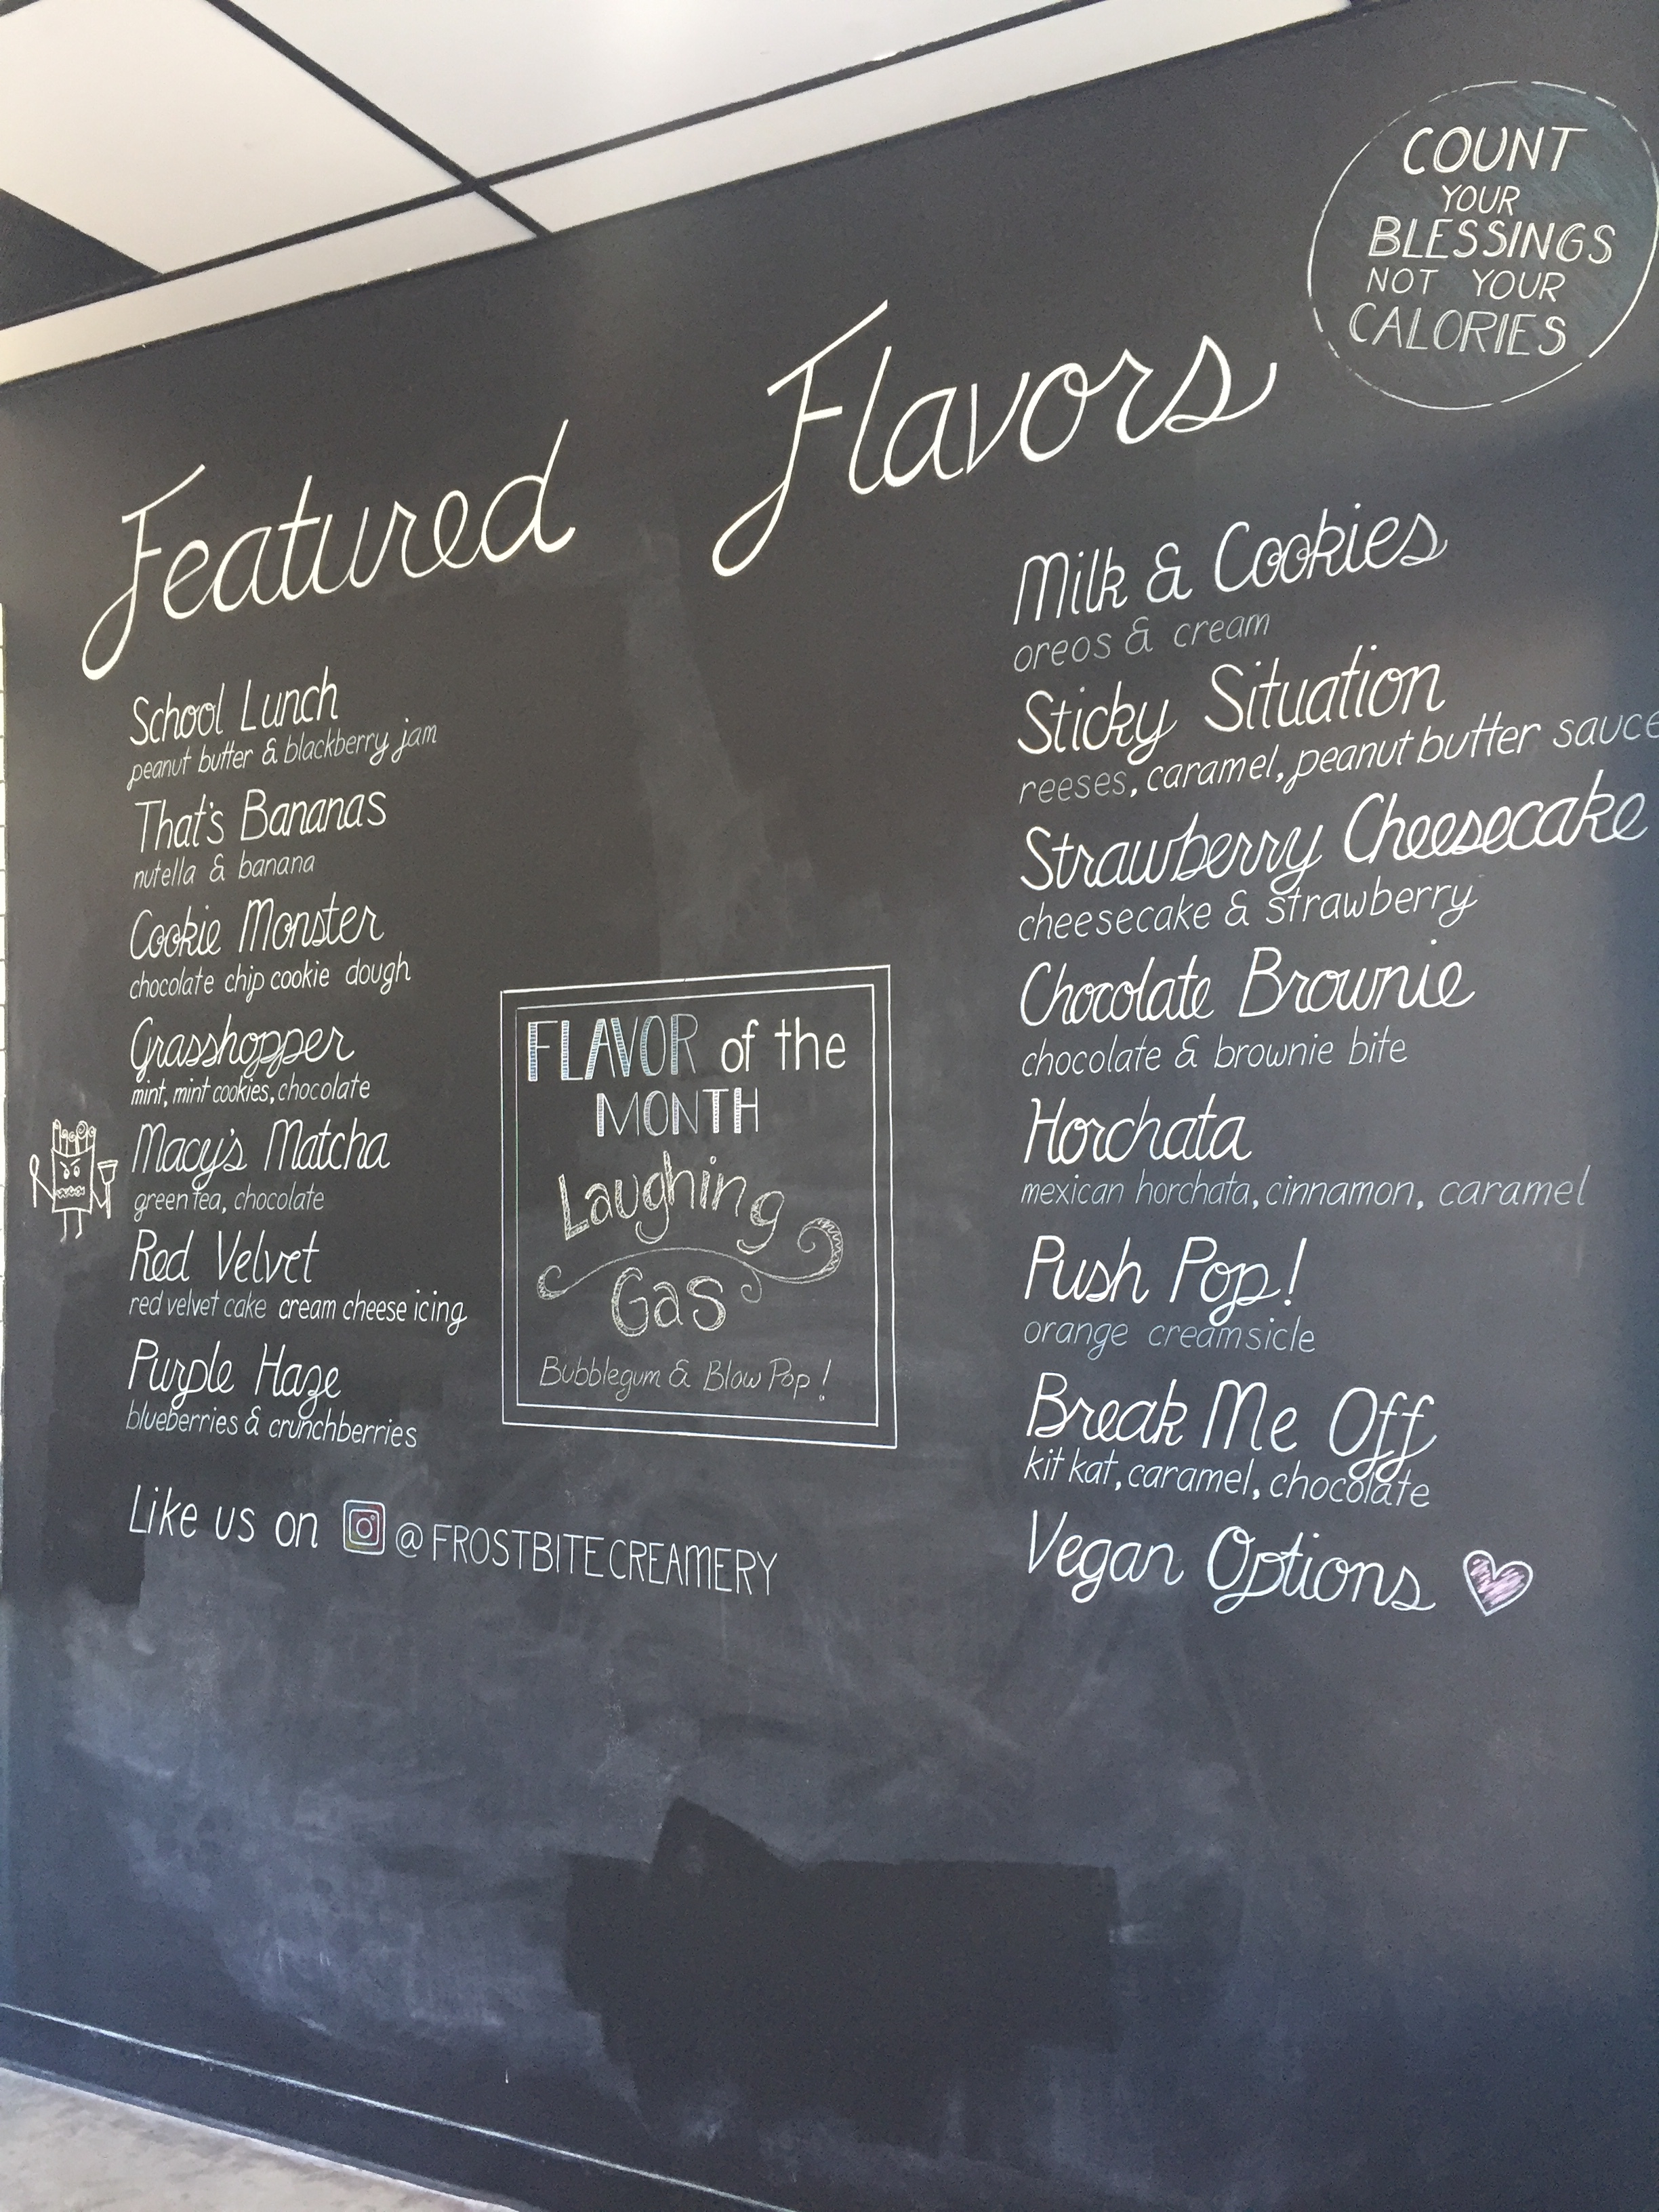 COUNT
YOUR
BLESSINGS
NOT YOUR
CALORIES
Featured Flavors
School Lunch
peanut butter & blackberry jam
That's Bananas
nutella & banana
Cookie Monster
chocolate chip cookie dough
Grasshopper
mint, mint cookies, chocolate
Macy's Matcha
green tea, chocolate
Red Velvet
red velvet cake cream cheese icing
Purple Haze
blueberries & crunchberries
Like us on @FROSTBITECREAMERY
FLAVOR of the
MONTH
Laughing
Gas
Bubblegum & Blow Pop!
Milk & Cookies
oreos & cream
Sticky Situation
reeses, caramel, peanut butter sauce
Strawberry Cheesecake
cheesecake & strawberry
Chocolate Brownie
chocolate & brownie bite
Horchata
mexican horchata, cinnamon, caramel
Push Pop!
orange creamsicle
Break Me Off
kit kat, caramel, chocolate
Vegan Options